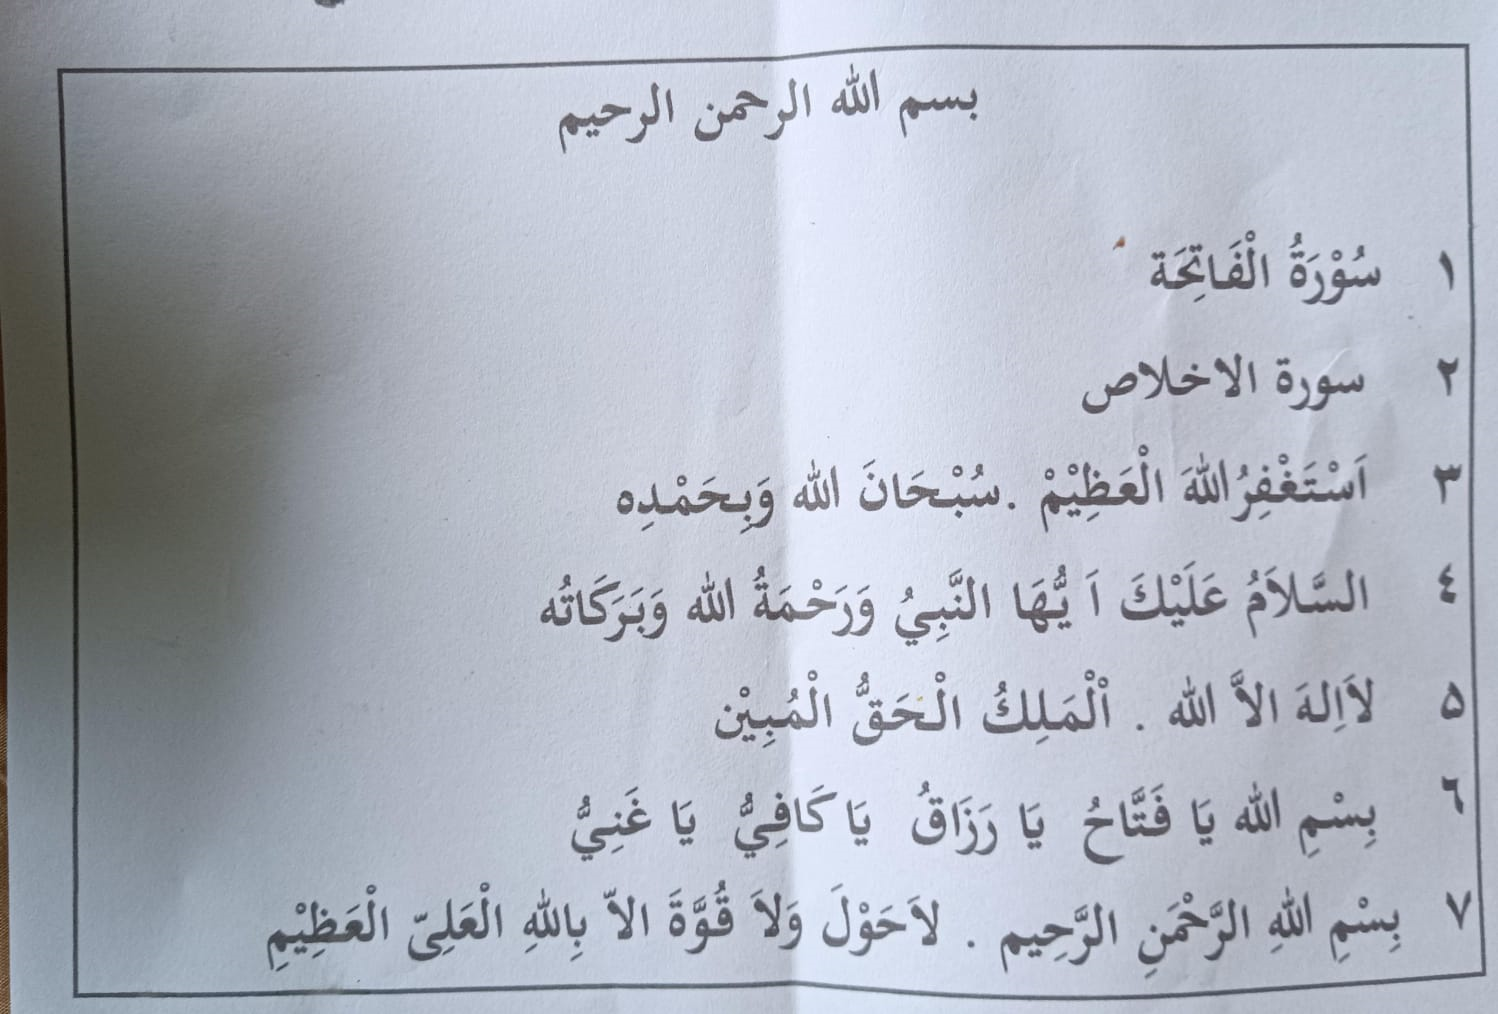 بسم الله الرحمن الرحيم
١ سُوْرَةُ الْفَاتِحَة
٢ سورة الاخلاص
٣ اَسْتَغْفِرُاللهَ الْعَظِيْمْ .سُبْحَانَ الله وَبِحَمْدِه
٤ السَّلاَمُ عَلَيْكَ اَ يُّهَا النَّبِيُ وَرَحْمَةُ الله وَبَرَكَاتُه
۵ لاَاِلهَ الاَّ الله . اْلْمَلِكُ الْحَقُّ الْمُبِيْن
٦ بِسْمِ الله يَا فَتَّاحُ يَا رَزَاقُ يَا كَافِيُّ يَا غَنِيُّ
٧ بِسْمِ اللهِ الرَّحْمَنِ الرَّحِيم . لاَحَوْلَ وَلاَ قُوَّةَ الاّ بِاللهِ الْعَلِىّ الْعَظِيْمِ